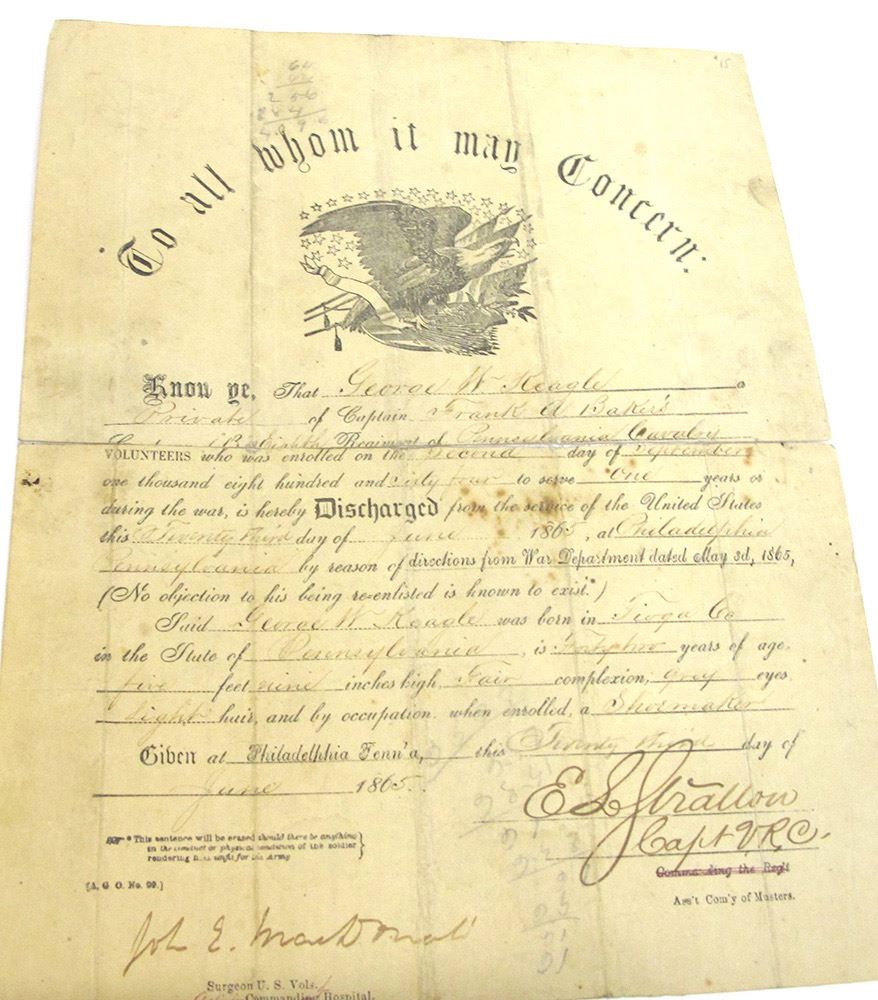 15
64
2 56
To all whom it may Concern:
Know ye, That George W Reagle a
Private of Captain Frank A Baker's
Regiment of Pennsylvania Cavalry
VOLUNTEERS who was enrolled on the Second day of September
one thousand eight hundred and sixty four to serve One years or
during the war, is hereby Discharged from the service of the United States
this Twenty third day of June 1865, at Philadelphia
Pennsylvania by reason of directions from War Department dated May 3d, 1865,
(No objection to his being re-enlisted is known to exist.*)
Said George W Reagle was born in Tioga Co
in the State of Pennsylvania, is Forty two years of age,
five feet nine inches high, Fair complexion, Grey eyes,
Light hair, and by occupation, when enrolled, a Shoemaker
Given at Philadelphia Penn'a, this Twenty third day of
June 1865.
E L Stratton
Capt V.R.C.
Commanding the Reg't
Ass't Com'y of Musters.
* This sentence will be erased should there be anything
in the conduct or physical condition of the soldier
rendering him unfit for the Army
[A. G. O. No. 99.]
Joh E. MacDonald
Surgeon U. S. Vols.
Commanding Hospital.